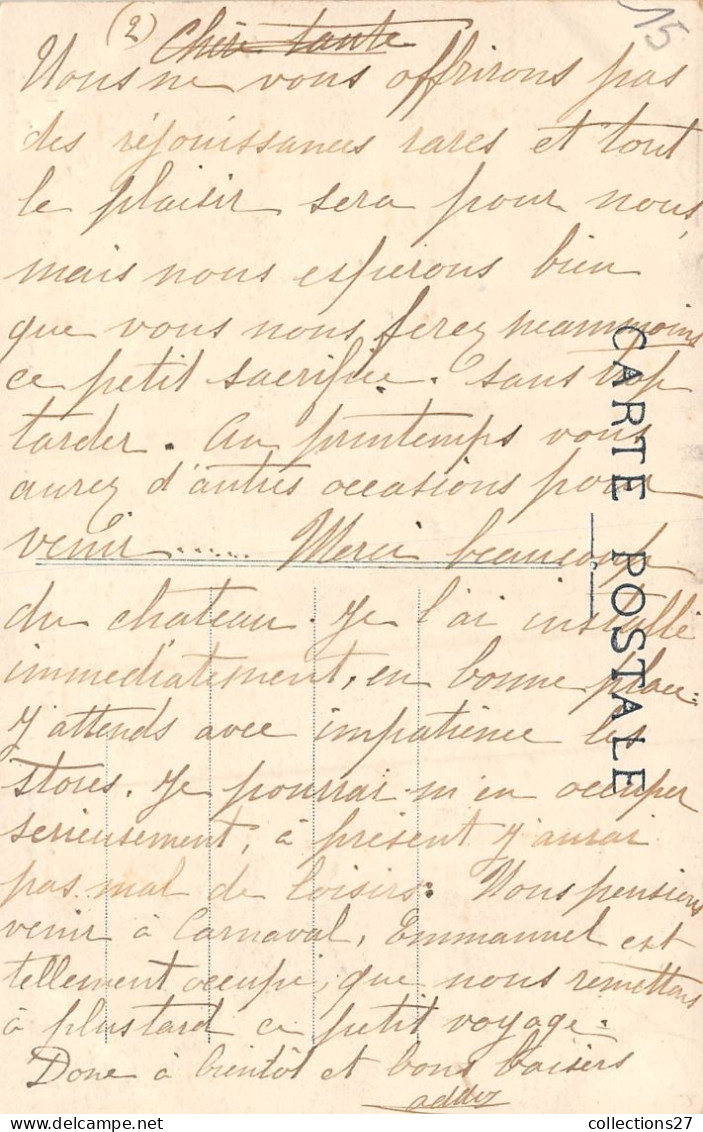 (2) Chère tante
15
Nous ne vous offrirons pas
des réjouissances rares et tout
le plaisir sera pour nous,
mais nous espérons bien
que vous nous ferez neammoins
ce petit sacrifice. Sans trop
tarder. Au printemps vous
aurez d'autres occasions pour
venir...... Merci beaucoup
du chateau. Je l'ai installé
immédiatement, en bonne place.
J'attends avec impatience les
stores. Je pourrai m'en occuper
serieusement, à présent j'aurai
pas mal de loisirs. Nous pensions
venir à Carnaval, Emmanuel est
tellement occupé, que nous remettons
à plus tard ce petit voyage.
Donc à bientôt et bons baisers
CARTE POSTALE
collections27